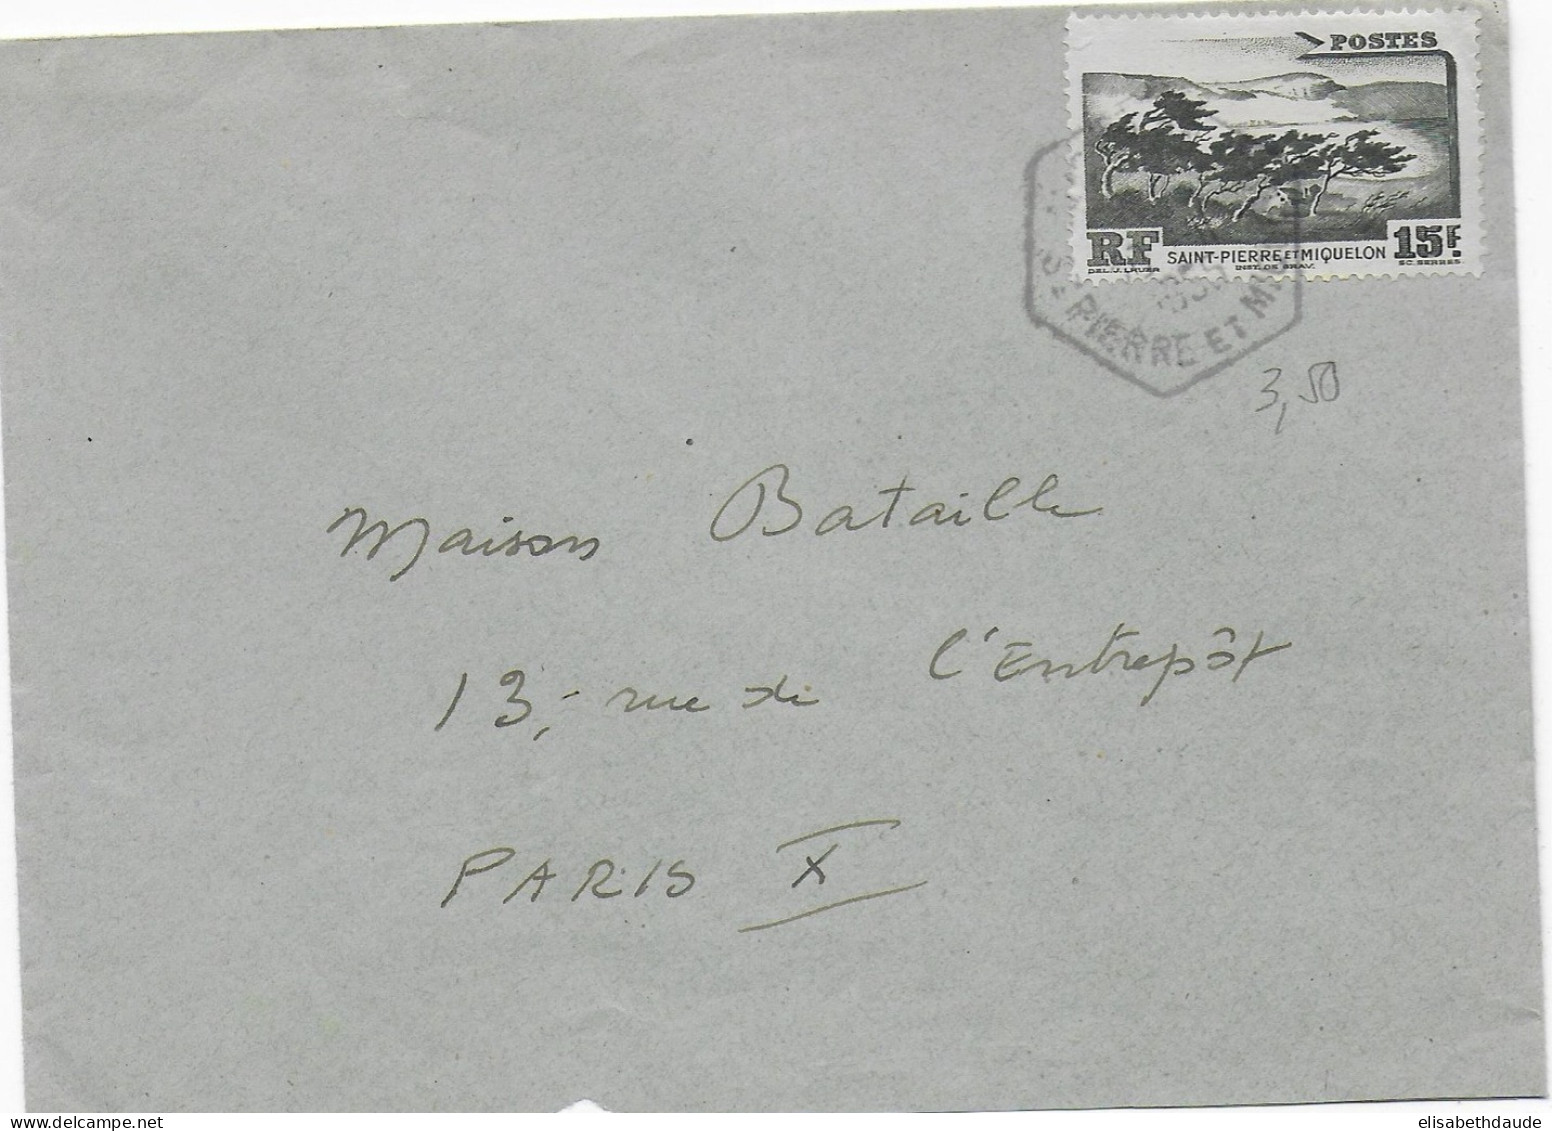 POSTES
RF
SAINT-PIERRE ET MIQUELON
15F.
DEL. J. LAUER
INST. DE GRAV.
SC. SERRES
ST PIERRE ET M
3,50
Maison Bataille
13,- rue de l'Entrepôt
PARIS X
elisabethdaude